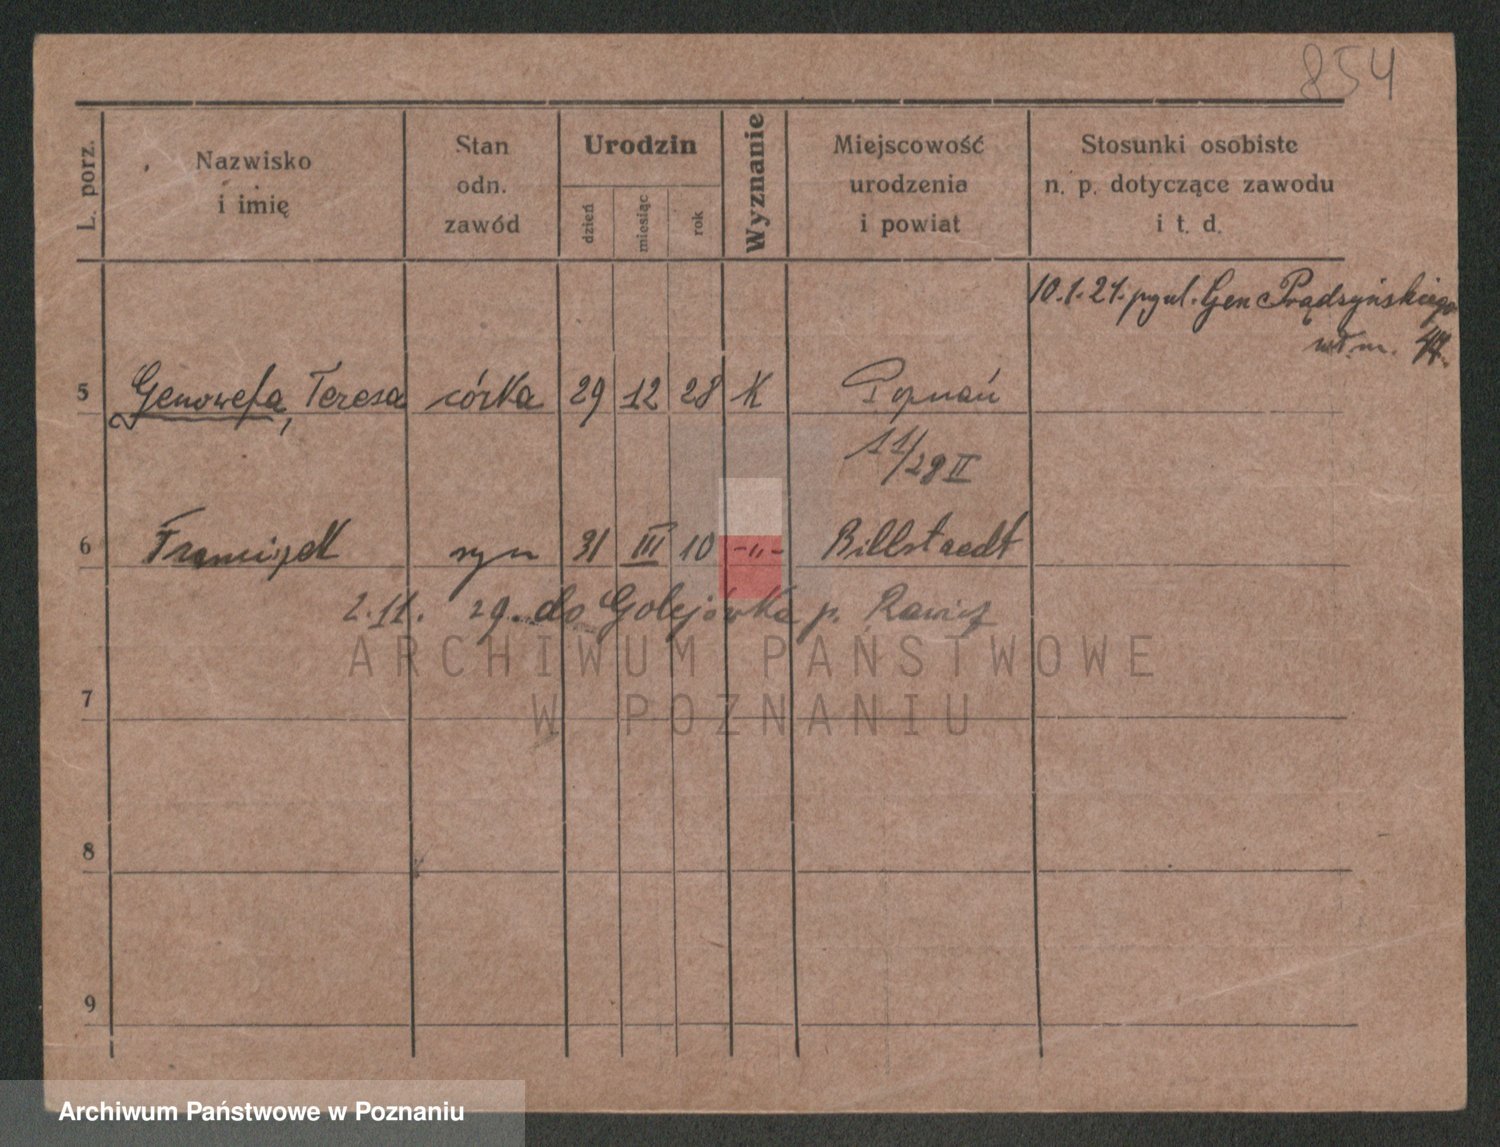 854
L. porz.
Nazwisko
i imię
Stan
odn.
zawód
Urodzin
dzień
miesiąc
rok
Wyznanie
Miejscowość
urodzenia
i powiat
Stosunki osobiste
n. p. dotyczące zawodu
i t. d.
10.1.21. ul. Gen Prądzyńskiego
44.
5 Genowefa, Teresa córka 29 12 28 K Poznań
11/28 II
6 Franciszek syn 31 III 10 -"- Billstaedt
2.11. 29. do Golejówka p. Rawicz
ARCHIWUM PAŃSTWOWE
W POZNANIU
7
8
9
Archiwum Państwowe w Poznaniu